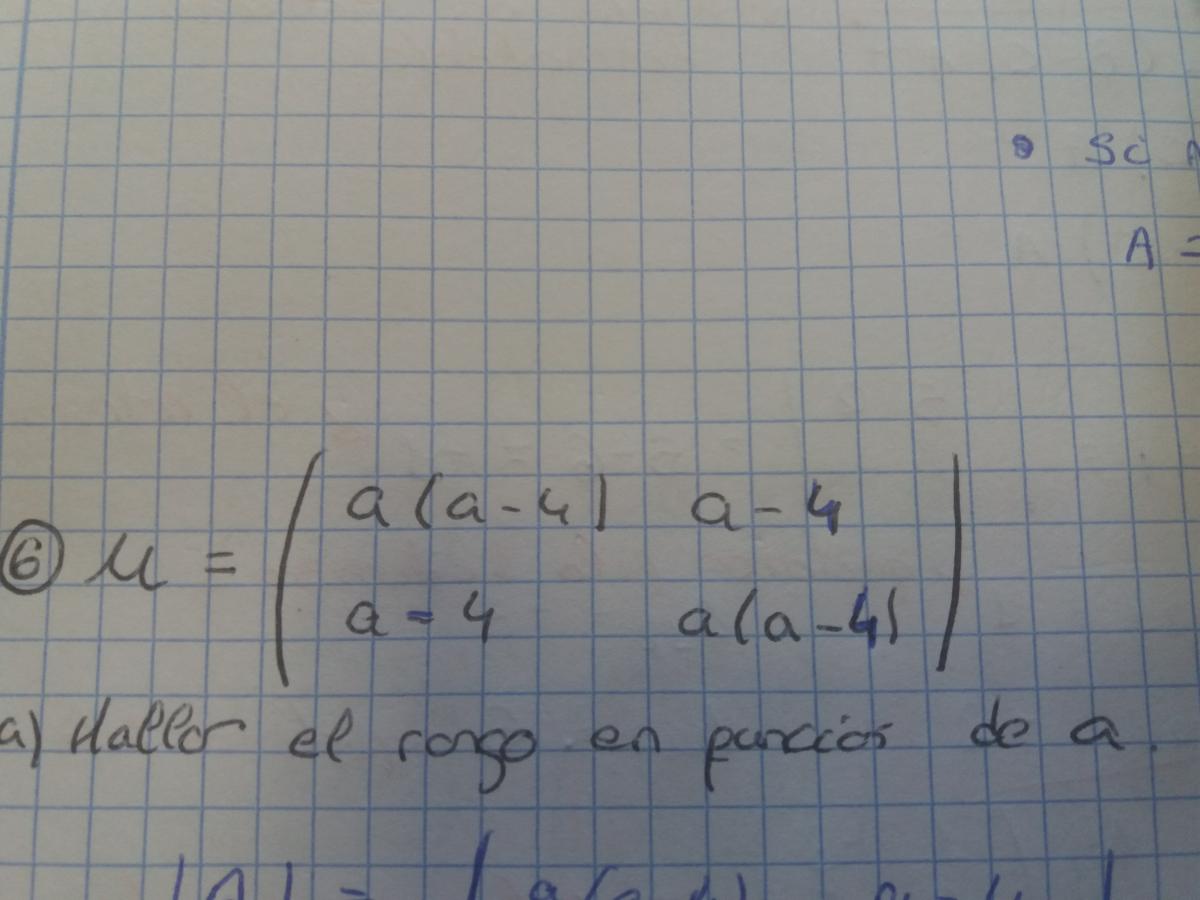 • Si
A =
⑥ M = ( a(a-4) a-4
a-4 a(a-4) )
a) Hallar el rango en función de a.
|A| = | a(a-4) a-4 |